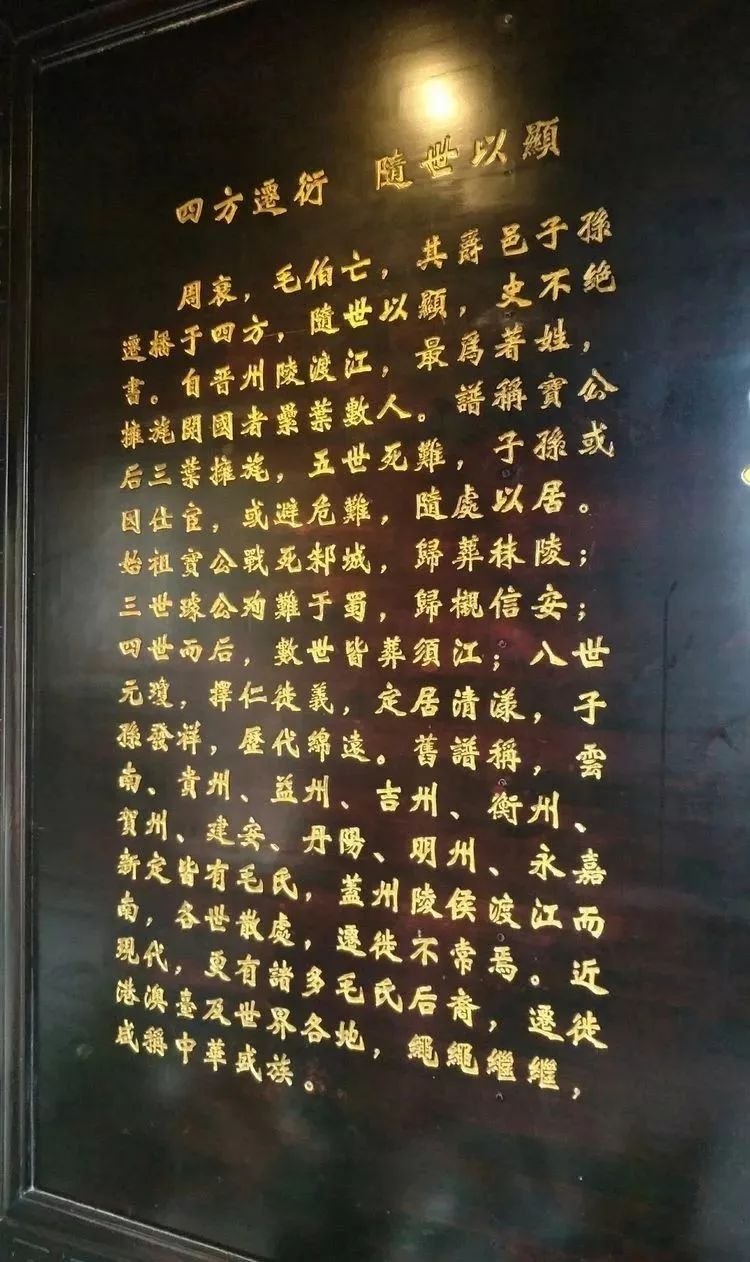 四方遷衍　隨世以顯
周衰，毛伯亡，其爵邑子孫
遷播于四方，隨世以顯，史不绝
書。自晋州陵渡江，最爲著姓，
擁旄開國者纍葉數人。譜稱寶公
后三葉擁旄，五世死難，子孫或
因仕宦，或避危難，隨處以居。
始祖寶公戰死邾城，歸葬秣陵；
三世璩公殉難于蜀，歸櫬信安；
四世而后，數世皆葬須江；八世
元瓊，擇仁徙義，定居清漾，子
孫發祥，歷代綿遠。舊譜稱，雲
南、貴州、益州、吉州、衡州、
賀州、建安、丹陽、明州、永嘉
新定皆有毛氏，蓋州陵侯渡江而
南，各世散處，遷徙不常焉。近
現代，更有諸多毛氏后裔，遷徙
港澳臺及世界各地，繩繩繼繼，
咸稱中華盛族。